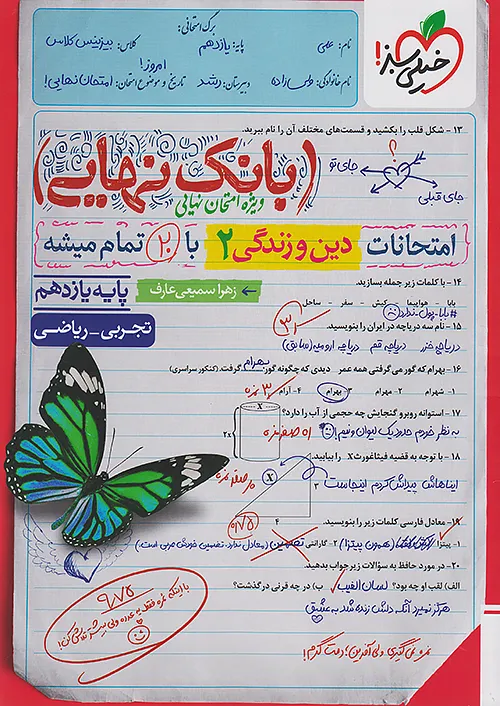 برگ امتحانی:
نام: علی
پایه: یازدهم
کلاس: بیزینس کلاس
نام خانوادگی:
دبیرستان: رشد
تاریخ و موضوع امتحان: امروز! (امتحان نهایی!)
خیلی سبز!
۱۳ - شکل قلب را بکشید و قسمت‌های مختلف آن را نام ببرید.
؟
جای تو
جای قبلی
(بانک نهایی)
ویژه امتحان نهایی
{امتحانات دین و زندگی ۲ با ۲۰ تمام میشه}
پایه یازدهم
زهرا سمیعی عارف
تجربی - ریاضی
۱۴ - با کلمات زیر جمله بسازید.
بابا - هواپیما - کیش - سفر - ساحل
#بابا_پول_نداره
۱۵ - نام سه دریاچه در ایران را بنویسید.
دریاچه خزر دریاچه قم دریاچه ارومیه (سابق)
۱۶ - بهرام که گور می‌گرفتی همه عمر دیدی که چگونه گور بهرام گرفت. (کنکور سراسری)
۱- شهرام ۲- مهرام ۳- بهرام ۴- آرام
۳ نمره
۱۷ - استوانه روبرو گنجایش چه حجمی از آب را دارد؟
به نظر خودم حدود یک لیوان و نیم!
x
2x
۱۸ - با توجه به قضیه فیثاغورث X را بیابید.
ایناهاش پیداش کردم اینجاست
X
۳
۴
۱۹ - معادل فارسی کلمات زیر را بنویسید.
۱- پیتزا (همون پیتزا) ۲- گارانتی تضمین (معادل ندارد. تضمین خودش عربی است.)
۲۰ - در مورد حافظ به سؤالات زیر جواب بدهید.
الف) لقب او چه بود؟ لسان الغیب ب) در چه قرنی درگذشت؟
هرگز نمیرد آنکه دلش زنده شد به عشق
۹/۷۵